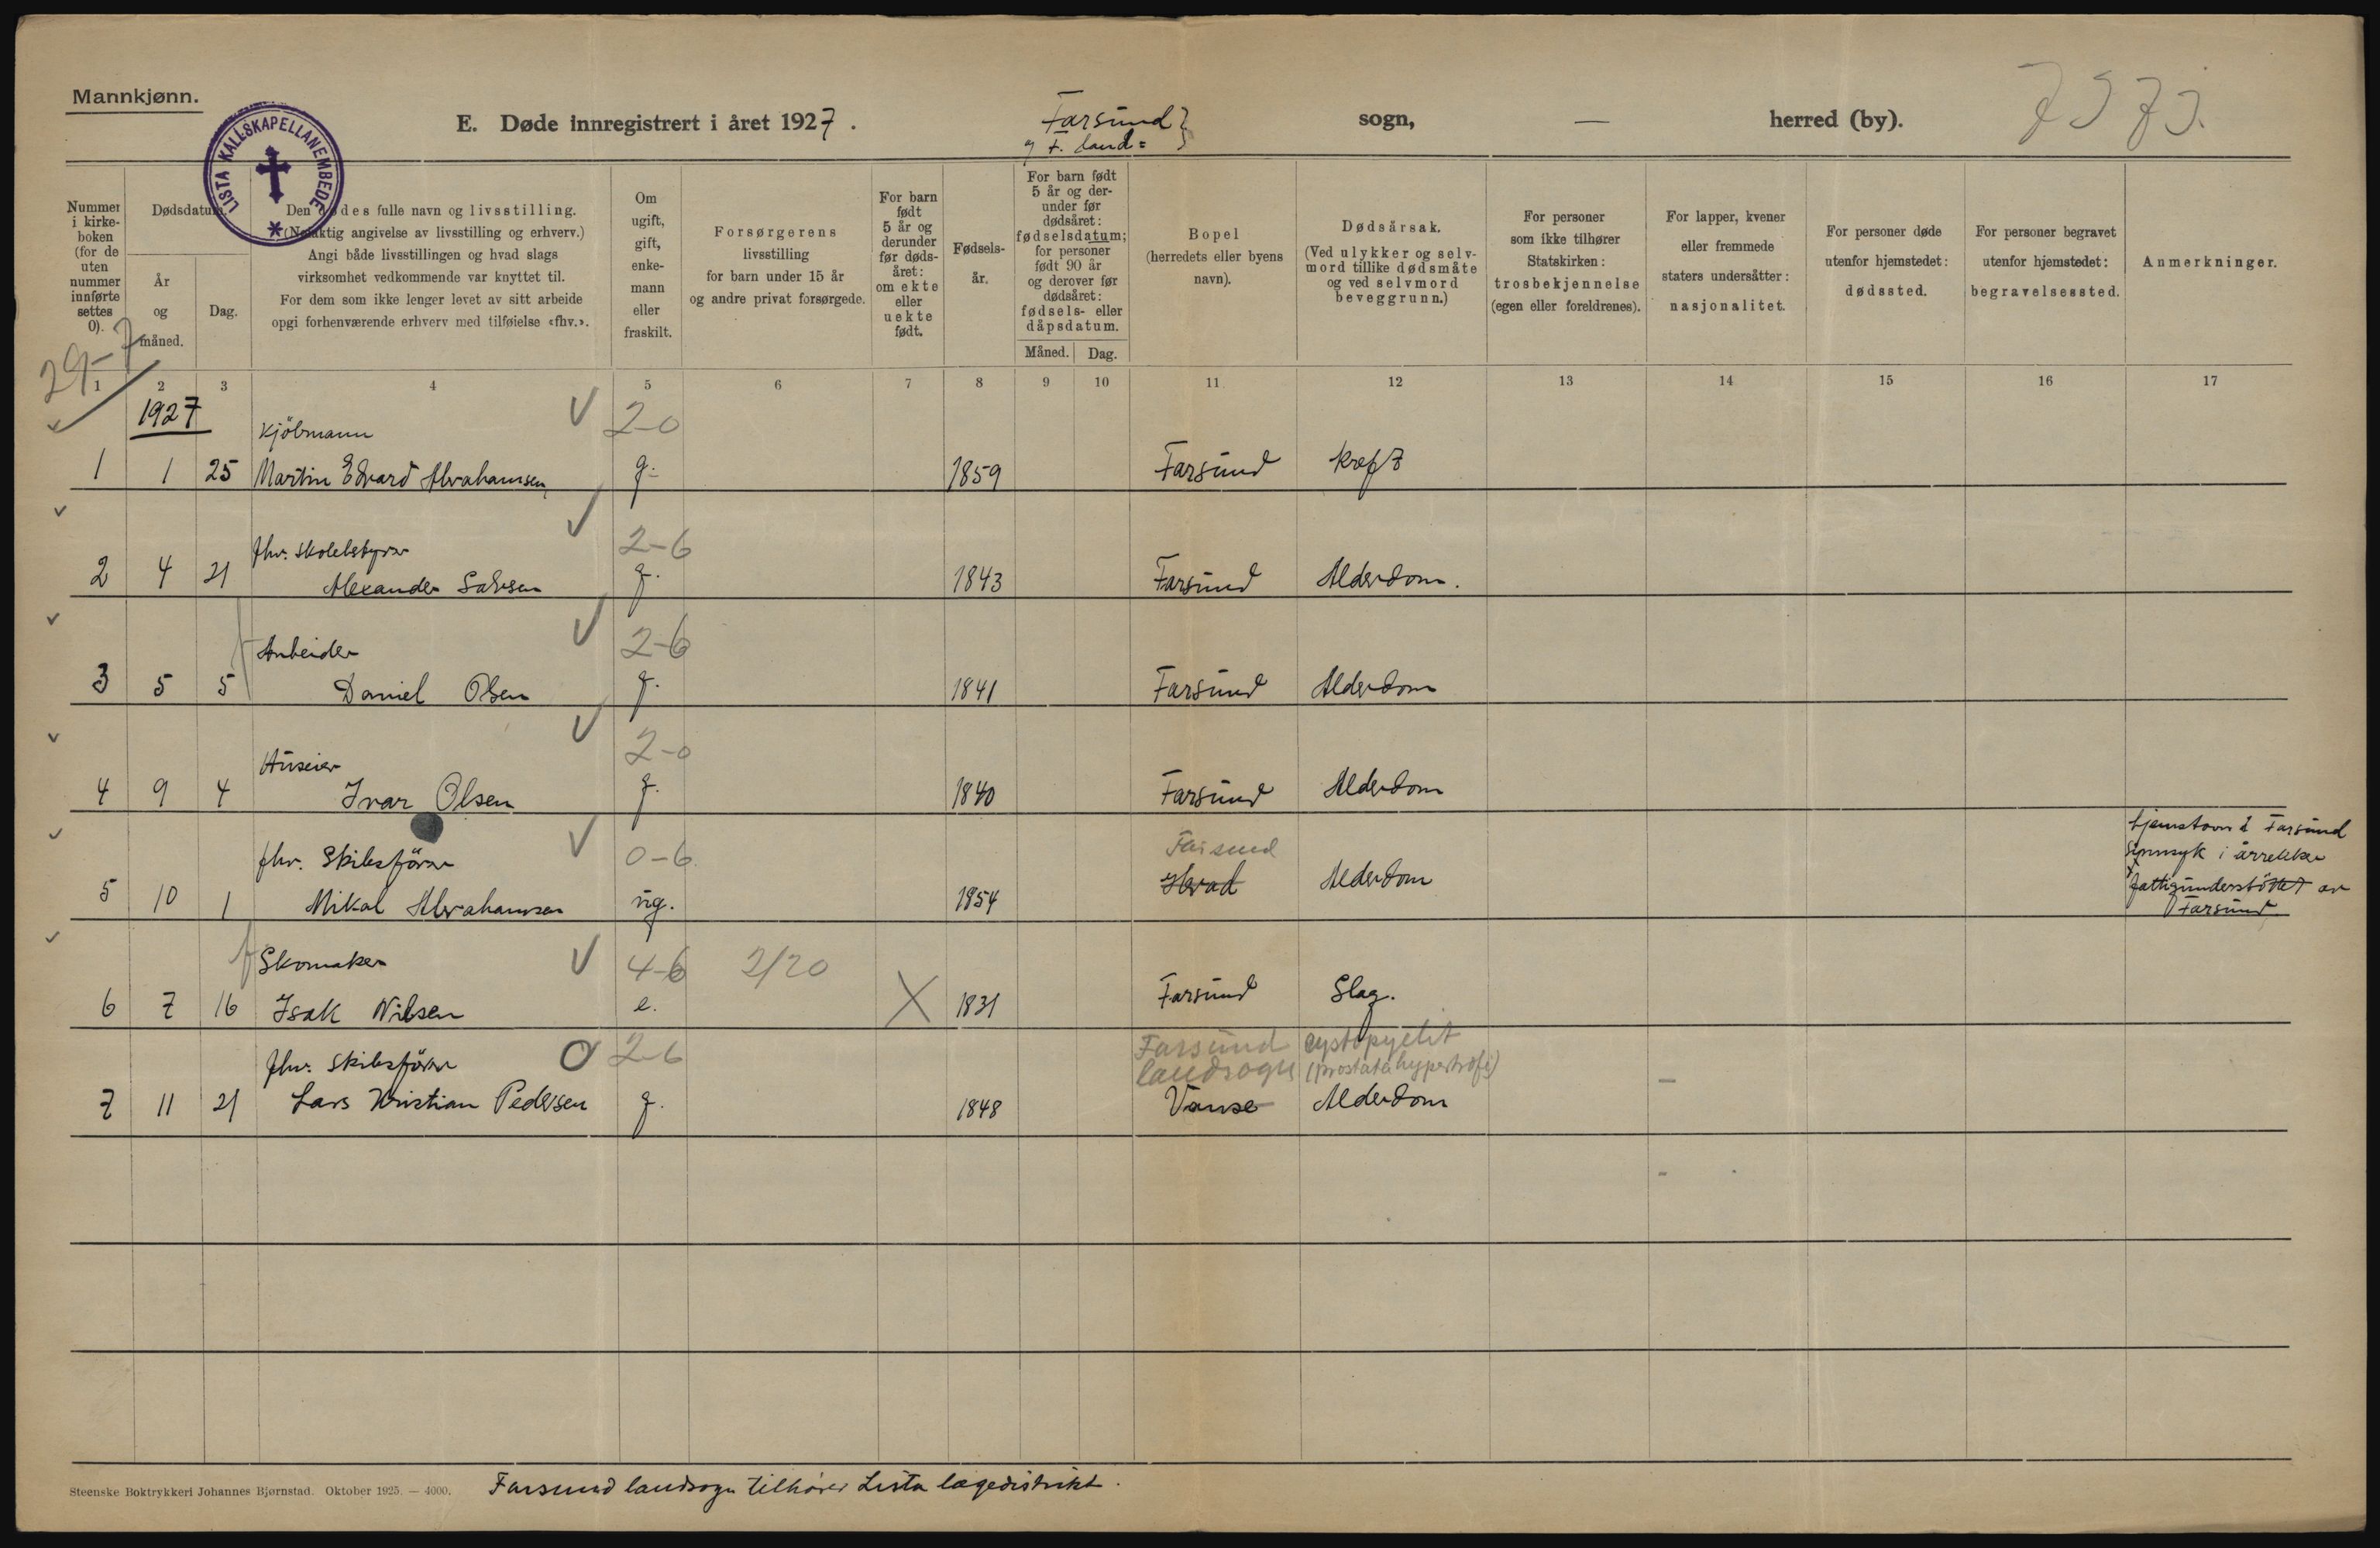 Mannkjønn.
LISTA KALLSKAPELLANEMBEDE
E. Døde innregistrert i året 1927.
Farsund
og F. land=
sogn,
—
herred (by).
Nummer i kirkeboken (for de uten nummer innførte settes 0).
Dødsdatum.
År og måned.
Dag.
Den dødes fulle navn og livsstilling.
(Nøiaktig angivelse av livsstilling og erhverv.)
Angi både livsstillingen og hvad slags
virksomhet vedkommende var knyttet til.
For dem som ikke lenger levet av sitt arbeide
opgi forhenværende erhverv med tilføielse «fhv.».
Om ugift, gift, enkemann eller fraskilt.
Forsørgerens
livsstilling
for barn under 15 år
og andre privat forsørgede.
For barn født 5 år og derunder før dødsåret: om ekte eller uekte født.
Fødselsår.
For barn født 5 år og derunder før dødsåret: fødselsdatum; for personer født 90 år og derover før dødsåret: fødsels- eller dåpsdatum.
Måned. Dag.
Bopel
(herredets eller byens
navn).
Dødsårsak.
(Ved ulykker og selvmord tillike dødsmåte og ved selvmord beveggrunn.)
For personer
som ikke tilhører
Statskirken:
trosbekjennelse
(egen eller foreldrenes).
For lapper, kvener
eller fremmede
staters undersåtter:
nasjonalitet.
For personer døde
utenfor hjemstedet:
dødssted.
For personer begravet
utenfor hjemstedet:
begravelsessted.
Anmerkninger.
29-7
1 2 3 4 5 6 7 8 9 10 11. 12 13 14 15 16 17
1927
Kjöbmann 2-0
1 1 25 Martin Edvard Abrahamsen, g. 1859 Farsund kreft
fhv. skolebstyrer 2-6
2 4 21 Alexander Salvesen g. 1843 Farsund Alderdom.
Arbeider 2-6
3 5 5 Daniel Olsen g. 1841 Farsund Alderdom
Huseier 2-0
4 9 4 Ivar Olsen g. 1840 Farsund Alderdom
fhv. Skibsförer 0-6 Farsund
5 10 1 Mikal Abrahamsen ug. 1854 Herad Alderdom
hjemstavn i Farsund
sinnsyk i årrekker
fattigunderstöttet av
Farsund
Skomaker 4-6 2/20
6 7 16 Isak Nilsen e. X 1831 Farsund Slag.
fhv. skibsförer 2-6 Farsund landsogn cystopyelit (prostatahypertrofi)
7 11 21 Lars Kristian Pedersen g. 1848 Vanse Alderdom
Steenske Boktrykkeri Johannes Bjørnstad. Oktober 1925. — 4000.
Farsund landsogn tilhører Lista lægedistrikt.